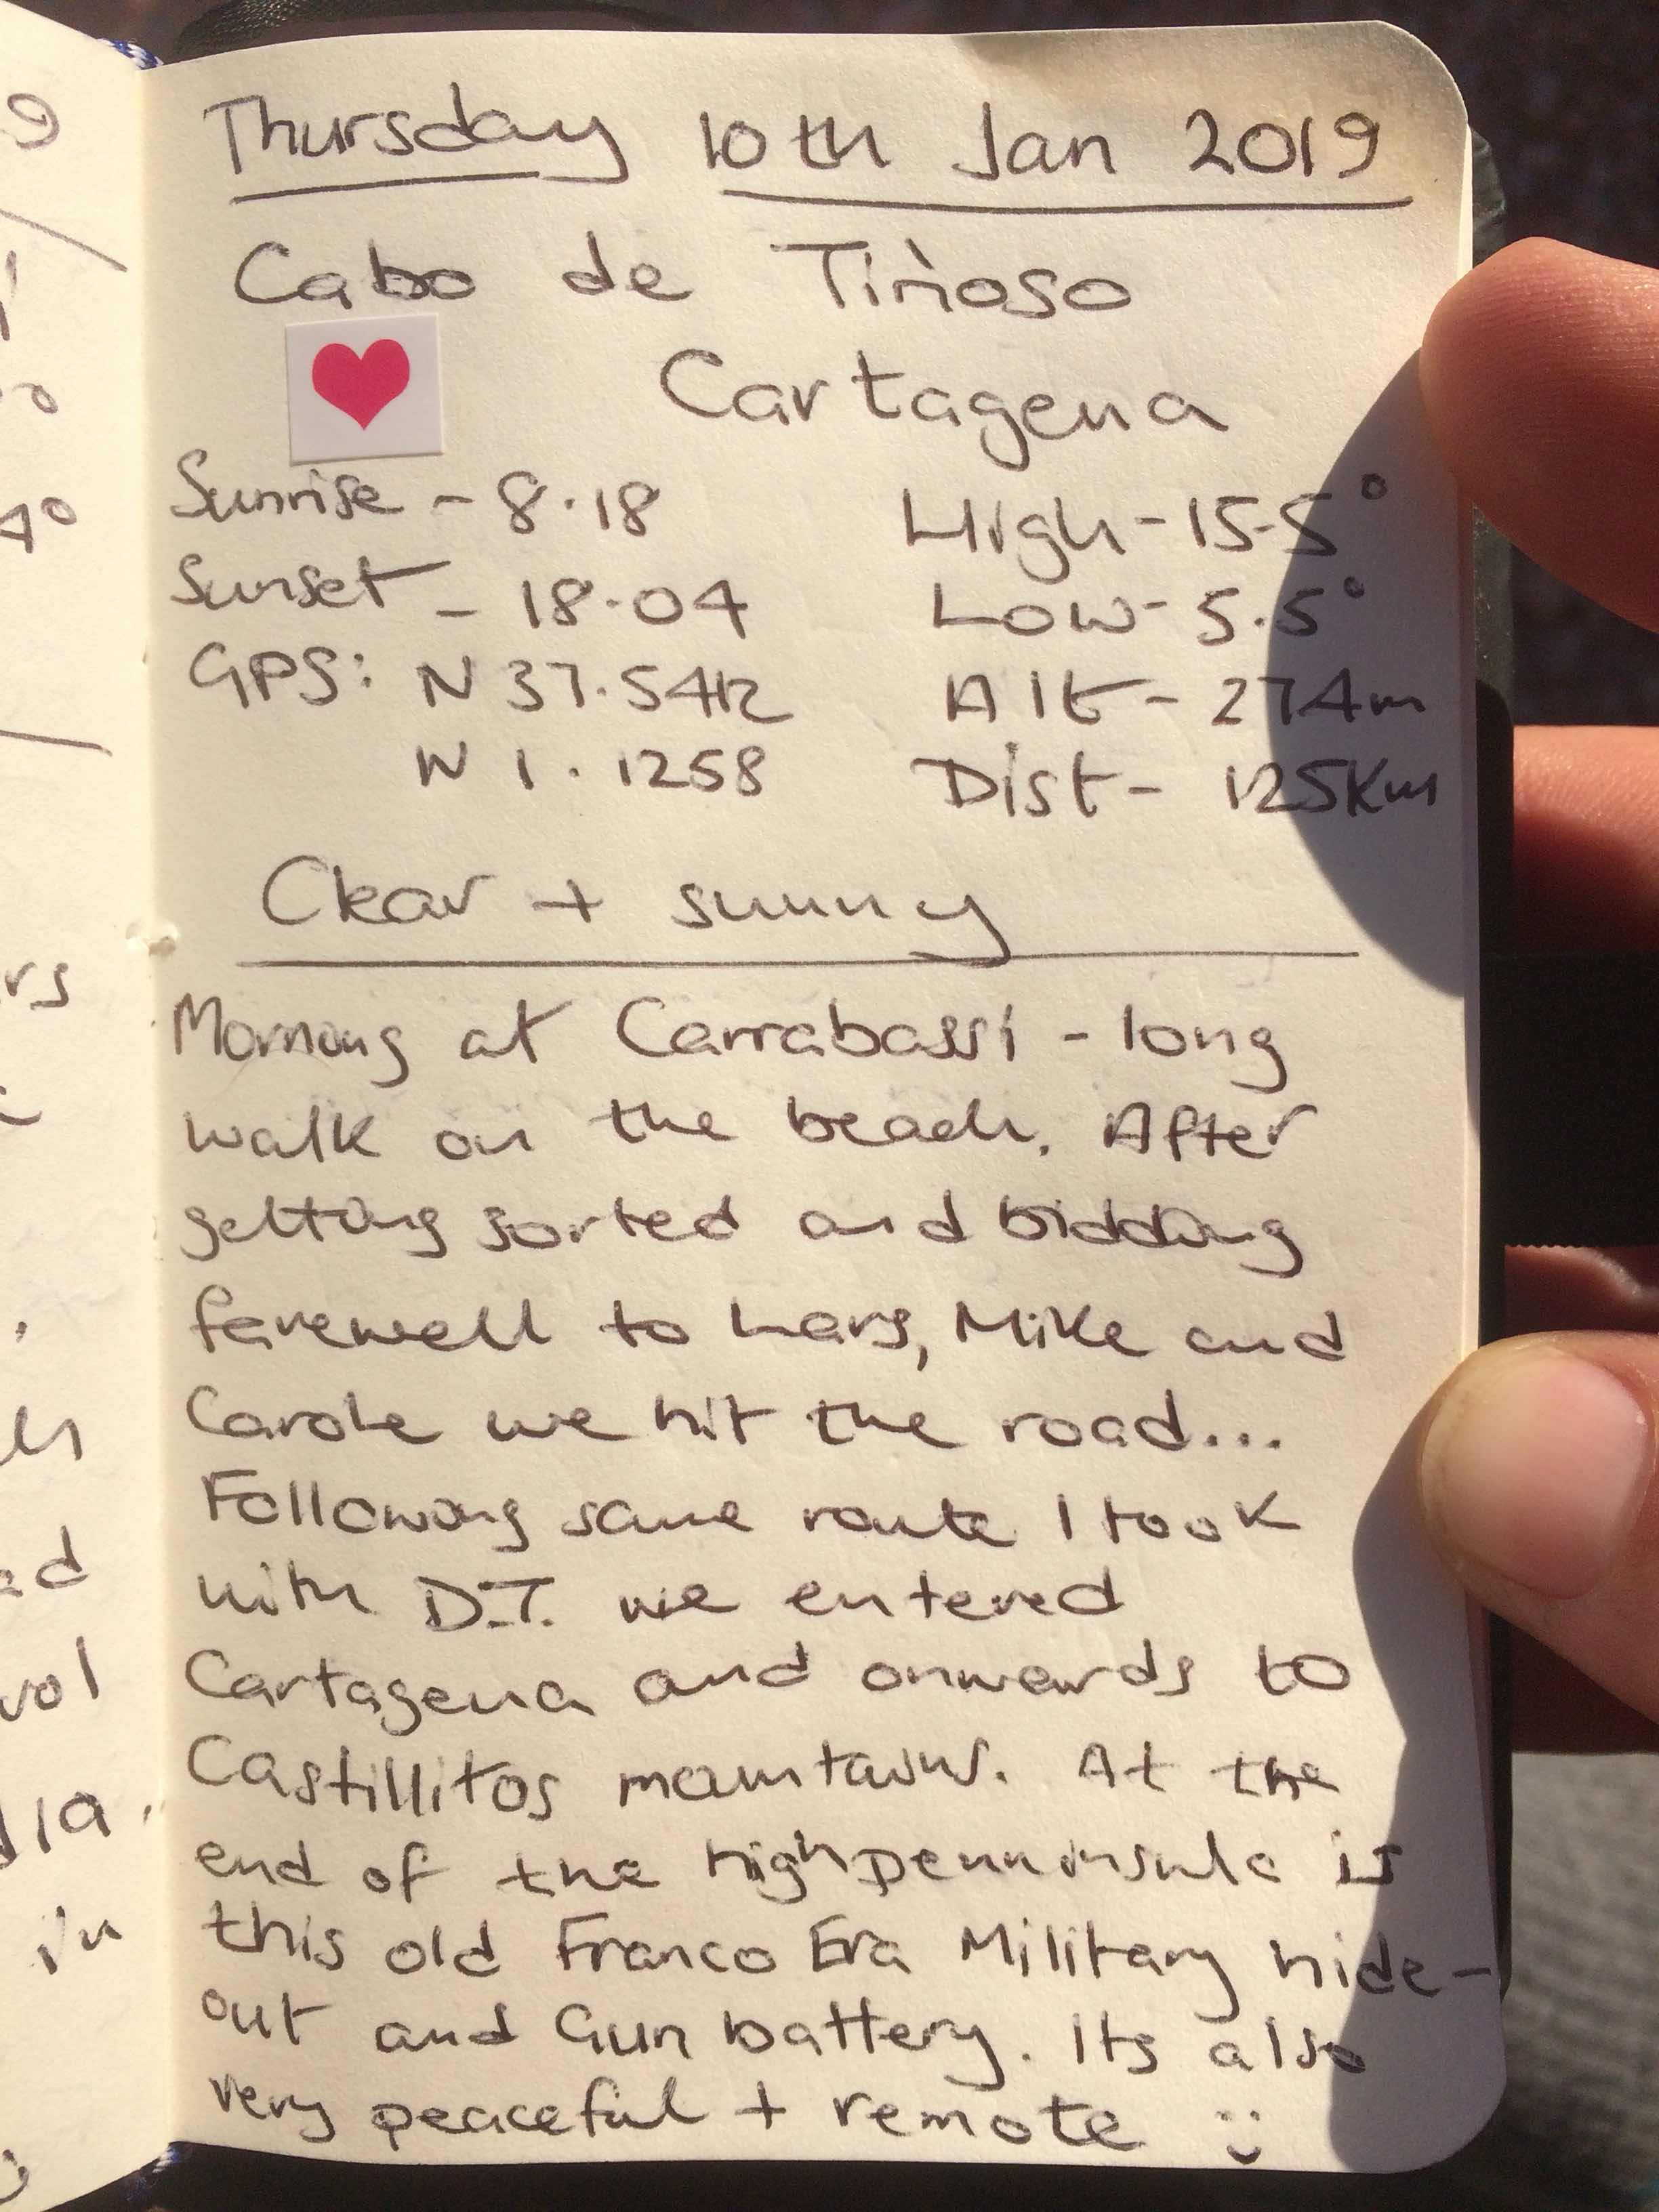 Thursday 10th Jan 2019
Cabo de Tiñoso
Cartagena
Sunrise - 8.18
High - 15.5°
Sunset - 18.04
Low - 5.5°
GPS: N 37.5412
Alt - 274m
W 1.1258
Dist - 125Km
Clear + sunny
Morning at Carrabassi - long
walk on the beach. After
getting sorted and bidding
farewell to Lars, Mike and
Carole we hit the road...
Following same route I took
with D.T. we entered
Cartagena and onwards to
Castillitos mountains. At the
end of the high penninsula is
this old Franco Era Military hide-
out and Gun battery. Its also
very peaceful + remote :)